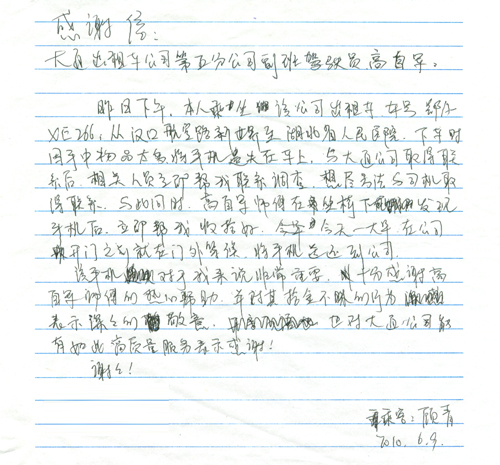 感谢信:
大通出租车公司第五分公司副班驾驶员高自军。
昨日下午,本人乘坐该公司出租车车号鄂A
XE266,从汉口航空路新世界至湖北省人民医院,下车时
因手中物品太多将手机丢失在车上,与大通公司取得联
系后,相关人员立即帮我联系调查,想尽办法与司机取
得联系,与此同时,高自军师傅在座椅下发现
手机后,立即帮我收好,今天一大早在公司
开门之前就在门外等候,将手机送还到公司。
该手机对于我来说非常重要,十分感谢高
自军师傅的热心帮助,并对其拾金不昧的行为
表示深深的敬意,也对大通公司能
有如此高质量服务表示感谢!
谢谢!
乘客:顾青
2010.6.9.